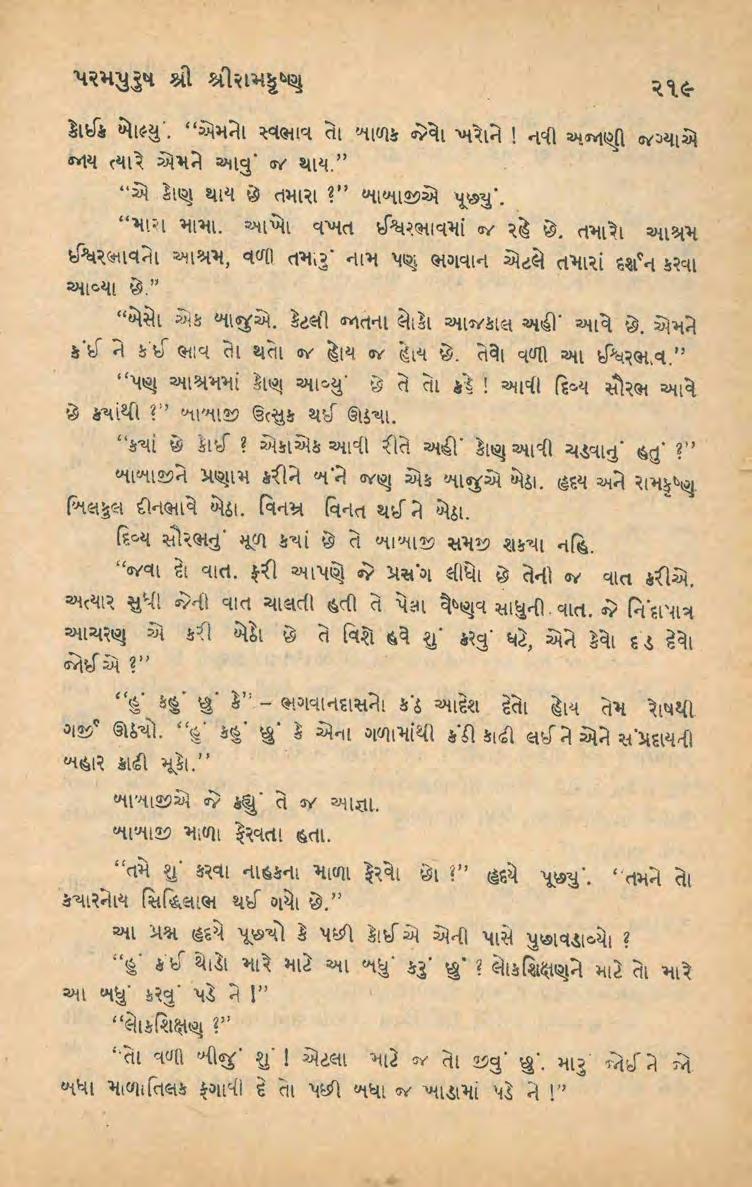 પરમપુરુષ શ્રી શ્રીરામકૃષ્ણ ૨૧૯
કોઈક બોલ્યું. “એમનો સ્વભાવ તો બાળક જેવો ખરોને ! નવી અજાણી જગ્યાએ
જાય ત્યારે એમને આવું જ થાય.”
“એ કોણ થાય છે તમારા ?” બાબાજીએ પૂછ્યું.
“મારા મામા. આખો વખત ઈશ્વરભાવમાં જ રહે છે. તમારો આશ્રમ
ઈશ્વરભાવનો આશ્રમ, વળી તમારું નામ પણ ભગવાન એટલે તમારાં દર્શન કરવા
આવ્યા છે.”
“બેસો એક બાજુએ. કેટલી જાતના લોકો આજકાલ અહીં આવે છે. એમને
કંઈ ને કંઈ ભાવ તો થતો જ હોય જ હોય છે. તેવો વળી આ ઈશ્વરભાવ.”
“પણ આશ્રમમાં કોણ આવ્યું છે તે તો કહે ! આવી દિવ્ય સૌરભ આવે
છે ક્યાંથી ?” બાબાજી ઉત્સુક થઈ ઊઠ્યા.
“ક્યાં છે કોઈ ? એકાએક આવી રીતે અહીં કોણ આવી ચડવાનું હતું ?”
બાબાજીને પ્રણામ કરીને બંને જણ એક બાજુએ બેઠા. હૃદય અને રામકૃષ્ણ
બિલકુલ દીનભાવે બેઠા. વિનમ્ર વિનત થઈને બેઠા.
દિવ્ય સૌરભનું મૂળ ક્યાં છે તે બાબાજી સમજી શક્યા નહિ.
“જવા દો વાત. ફરી આપણે જે પ્રસંગ લીધો છે તેની જ વાત કરીએ.
અત્યાર સુધી જેની વાત ચાલતી હતી તે પેલા વૈષ્ણવ સાધુની વાત. જે નિંદાપાત્ર
આચરણ એ કરી બેઠો છે તે વિશે હવે શું કરવું ઘટે, એને કેવો દંડ દેવો
જોઈએ ?”
“હું કહું છું કે” – ભગવાનદાસનો કંઠ આદેશ દેતો હોય તેમ રોષથી
ગર્જી ઊઠ્યો. “હું કહું છું કે એના ગળામાંથી કંઠી કાઢી લઈને એને સંપ્રદાયની
બહાર કાઢી મૂકો.”
બાબાજીએ જે કહ્યું તે જ આજ્ઞા.
બાબાજી માળા ફેરવતા હતા.
“તમે શું કરવા નાહકના માળા ફેરવો છો ?” હૃદયે પૂછ્યું. “તમને તો
ક્યારનોય સિદ્ધિલાભ થઈ ગયો છે.”
આ પ્રશ્ન હૃદયે પૂછ્યો કે પછી કોઈએ એની પાસે પુછાવડાવ્યો ?
“હું કંઈ થોડો મારે માટે આ બધું કરું છું ? લોકશિક્ષણને માટે તો મારે
આ બધું કરવું પડે ને !”
“લોકશિક્ષણ ?”
“તો વળી બીજું શું ! એટલા માટે જ તો જીવું છું. મારું જોઈને જો
બધા માળાતિલક ફગાવી દે તો પછી બધા જ ખાડામાં પડે ને !”